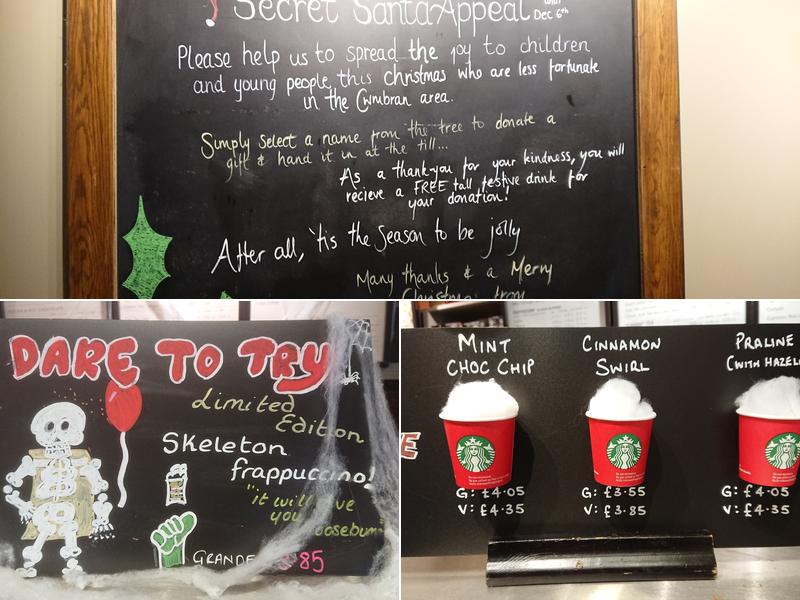 Secret Santa Appeal until
Dec 6th
Please help us to spread the joy to children
and young people this christmas who are less fortunate
in the Cwmbran area.
Simply select a name from the tree to donate a
gift & hand it in at the till...
As a thank-you for your kindness, you will
recieve a FREE tall festive drink for
your donation!
After all, 'tis the season to be jolly
Many thanks & a Merry
Christmas from
DARE TO TRY
Limited
Edition
Skeleton
frappuccino!
"it will
you
GRANDE 85
MINT
CHOC CHIP
G: £4.05
V: £4.35
CINNAMON
SWIRL
G: £3.55
V: £3.85
PRALINE
(WITH HAZEL
G: £4.05
V: £4.35